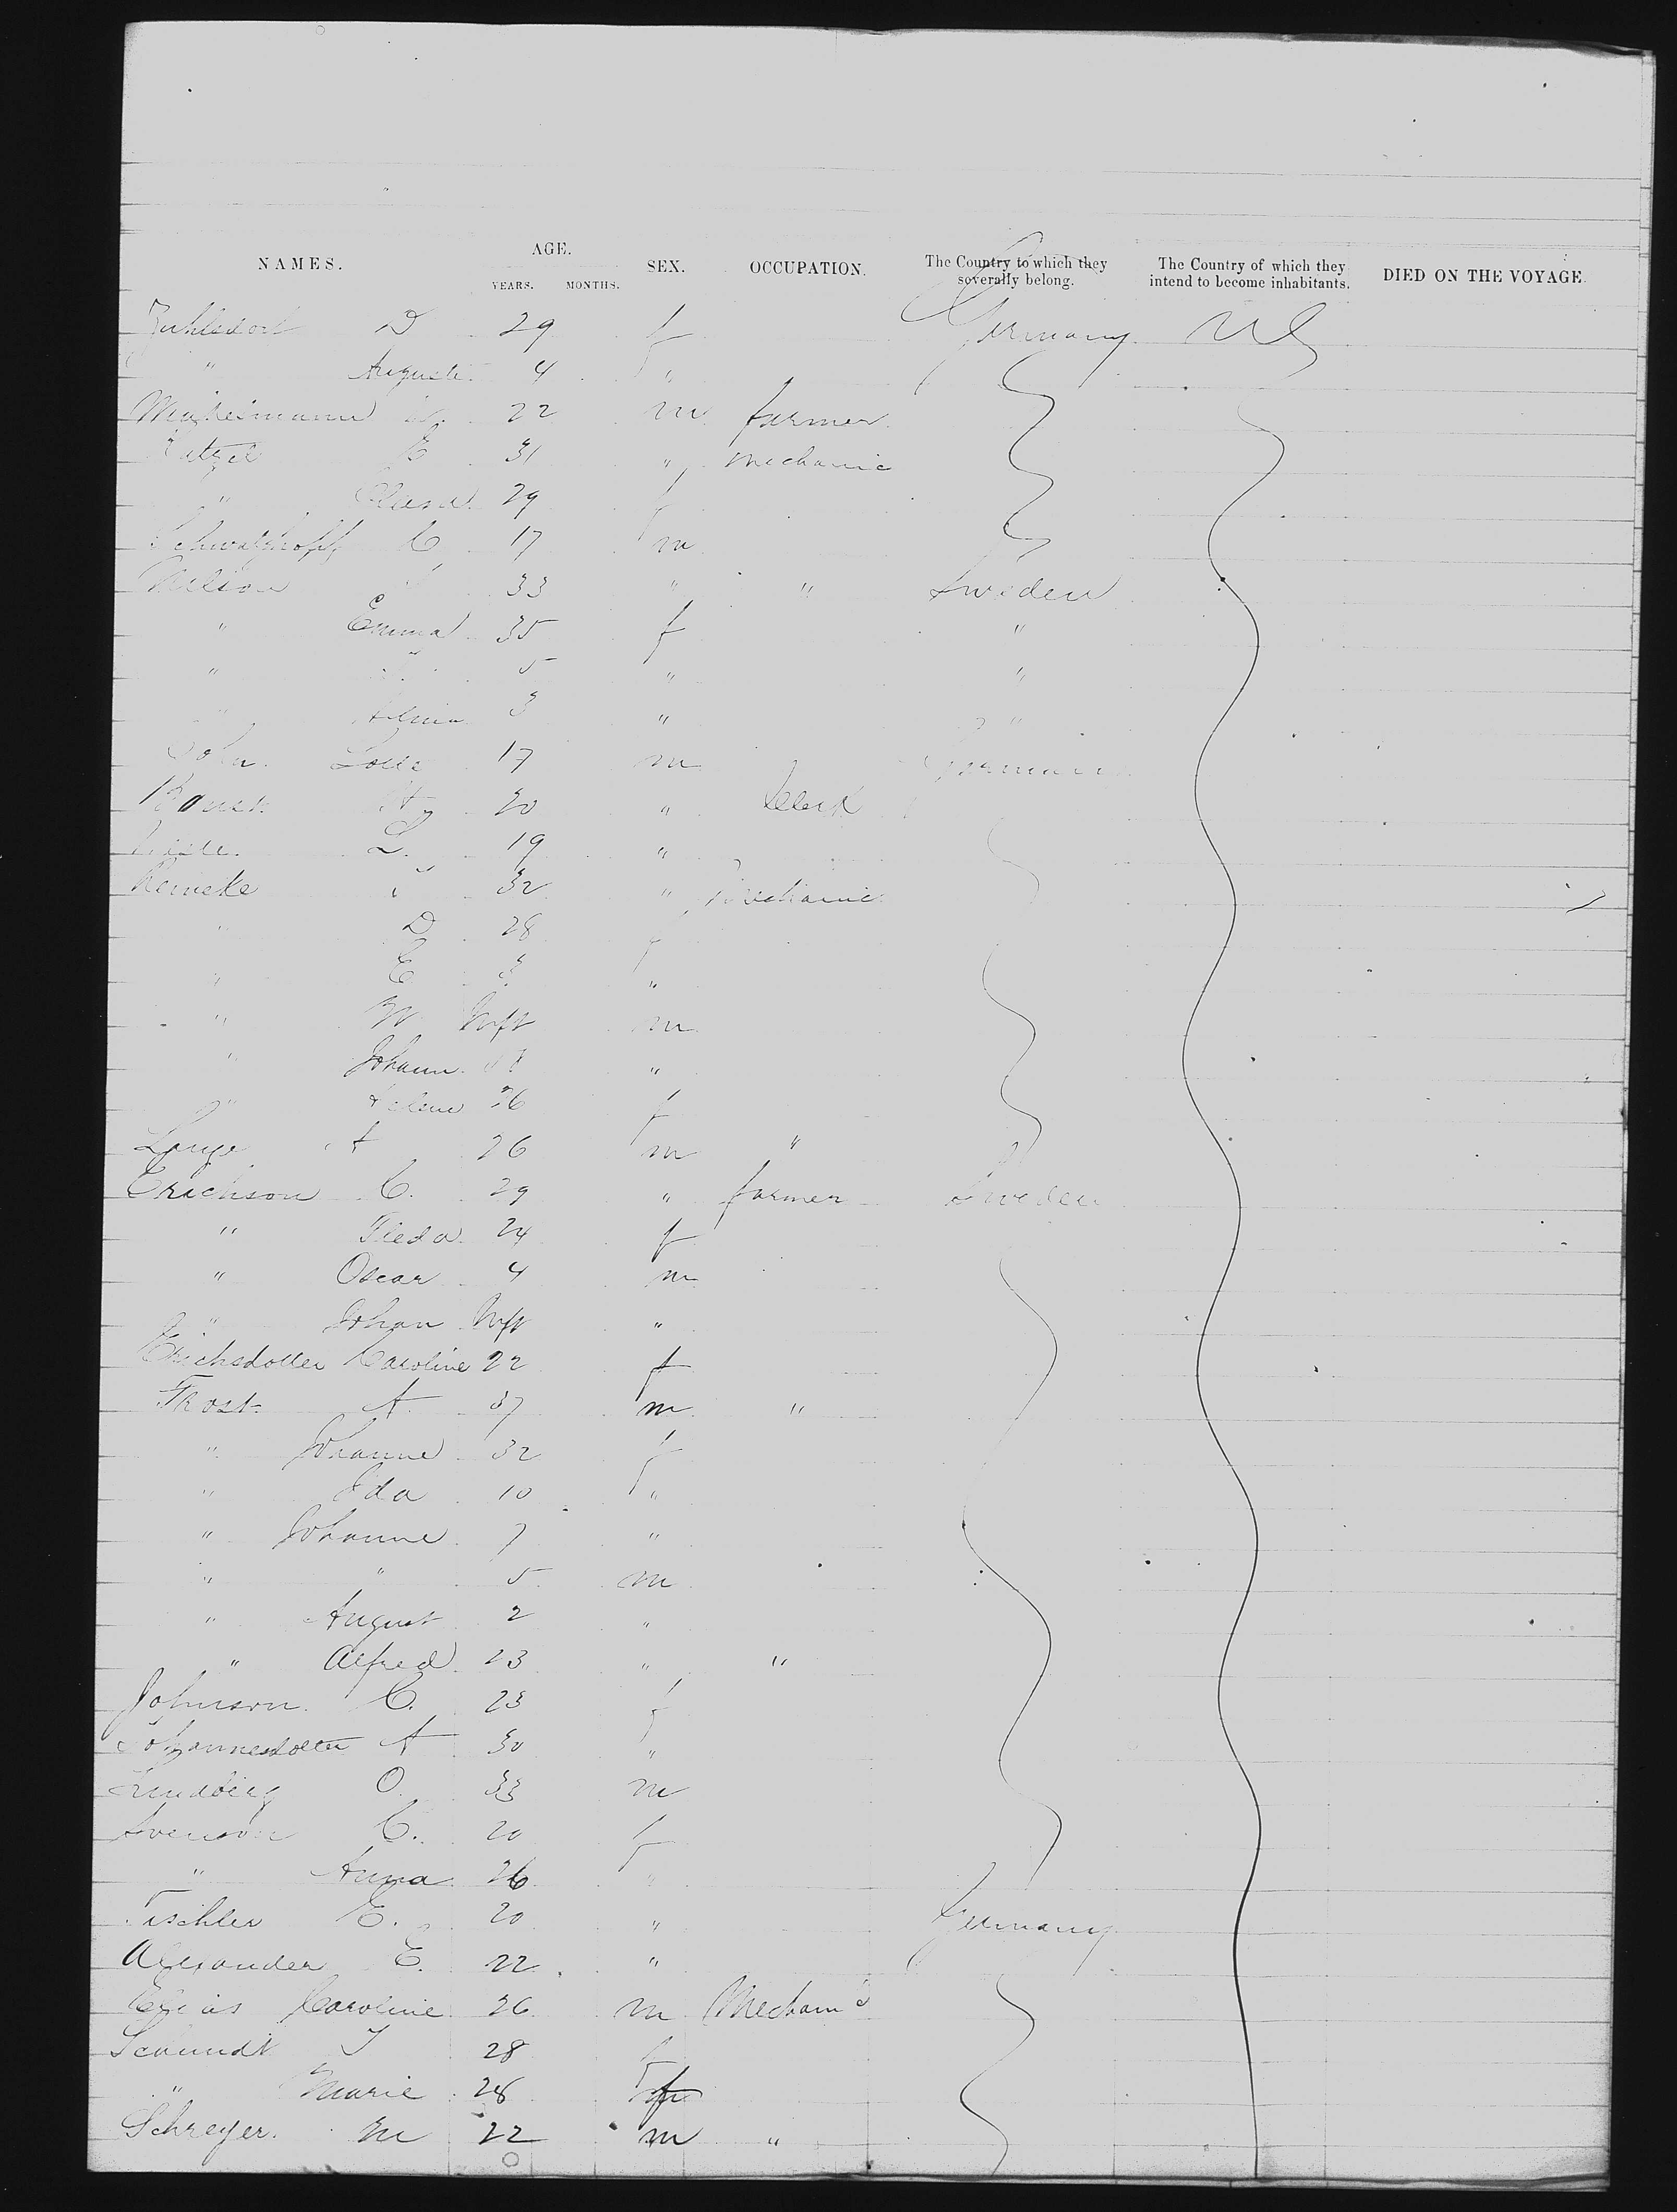 NAMES. AGE. YEARS. MONTHS. SEX. OCCUPATION. The Country to which they soverally belong. The Country of which they intend to become inhabitants. DIED ON THE VOYAGE.
D 29 f Germany US
" Auguste 4 "
22 m farmer
31 " mechanic
" 29 f
C 17 m
Nelson 33 " " Sweden
" Emma 35 f "
" 5 " "
" 3 " "
17 m Germany
30 " Clerk
L. 19 "
Reineke 32 " Mechanic
" D 28 f
" E 3 "
" W Inft m
" Johann "
" Helene 26 f
Lange A 26 m "
Erichson C. 29 " farmer Sweden
" 24 f
" Oscar 4 m
" Johan Inft "
Erichsdotter Caroline 22 f
Frost A. 37 m "
" Johanne 32 f
" Ida 10 "
" Johanne 7 "
" " 5 m
" August 2 "
" Alfred 23 " "
Johnson C. 23 f
Johannesdotter A 30 "
Lundberg O. 33 m
Svenson C. 20 f
" Anna 26 "
Tischler E. 20 " Germany
Alexander E. 22 "
Caroline 26 m Mechanic
Schmidt J 28 f
" Marie 28 f
Schreyer. M 22 m "